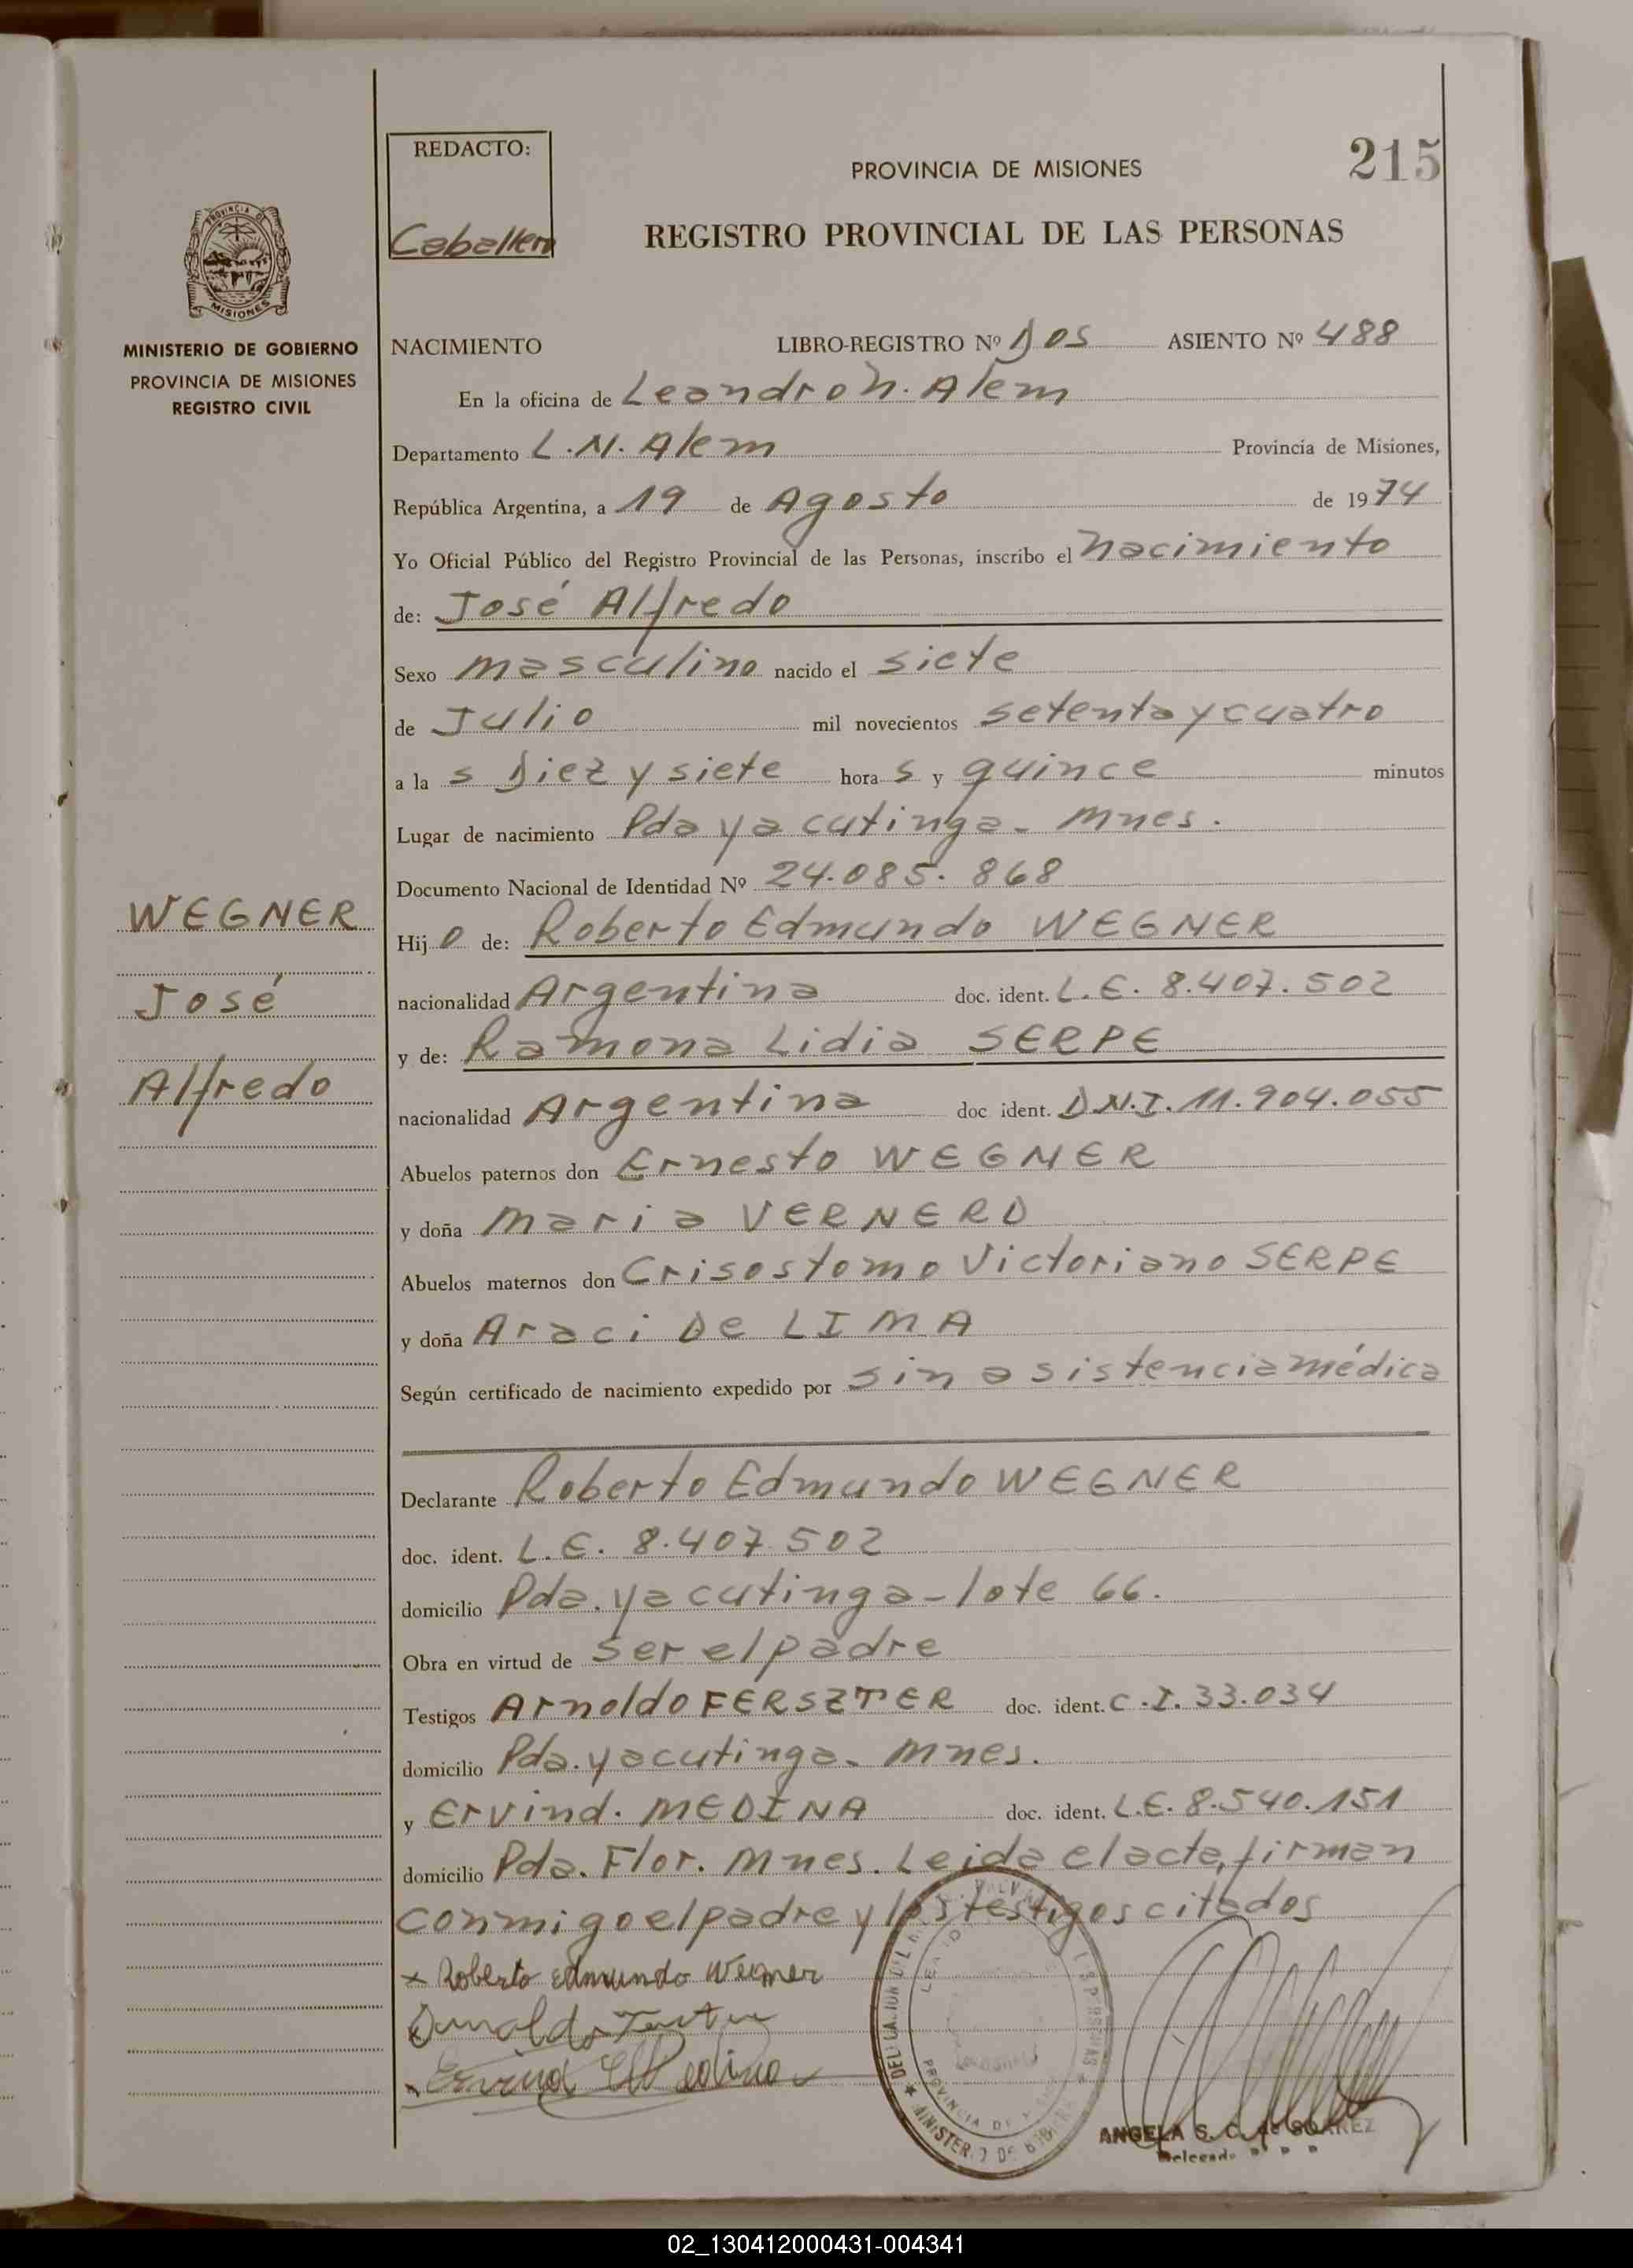 215
REDACTO:
Caballero
PROVINCIA DE MISIONES
REGISTRO PROVINCIAL DE LAS PERSONAS
PROVINCIA DE
MISIONES
MINISTERIO DE GOBIERNO
PROVINCIA DE MISIONES
REGISTRO CIVIL
NACIMIENTO LIBRO-REGISTRO Nº Dos ASIENTO Nº 488
En la oficina de Leandro N. Alem
Departamento L.N. Alem Provincia de Misiones,
República Argentina, a 19 de Agosto de 1974
Yo Oficial Público del Registro Provincial de las Personas, inscribo el nacimiento
de: José Alfredo
Sexo masculino nacido el siete
de Julio mil novecientos setenta y cuatro
a la s Diez y siete hora s y quince minutos
Lugar de nacimiento Pda yacutinga - Mnes.
Documento Nacional de Identidad Nº 24.085.868
WEGNER
José
Alfredo
Hijo de: Roberto Edmundo WEGNER
nacionalidad Argentina doc. ident. L.E. 8.407.502
y de: Ramona Lidia SERPE
nacionalidad Argentina doc ident. D.N.I. 11.904.055
Abuelos paternos don Ernesto WEGNER
y doña Maria VERNERD
Abuelos maternos don Crisostomo Victoriano SERPE
y doña Araci De LIMA
Según certificado de nacimiento expedido por sin asistencia médica
Declarante Roberto Edmundo WEGNER
doc. ident. L.E. 8.407.502
domicilio Pda. yacutinga - lote 66.
Obra en virtud de ser el padre
Testigos Arnoldo FERSZTER doc. ident. C.I. 33.034
domicilio Pda. yacutinga - Mnes.
y Ervind. MEDINA doc. ident. L.E. 8.540.151
domicilio Pda. Flor. Mnes. Leida el acta, firman
conmigo el padre y los testigos citados
x Roberto Edmundo Wegner
Ervind Medina
PROVINCIA DE
ANGELA S. C. de SOAREZ
02_130412000431-004341